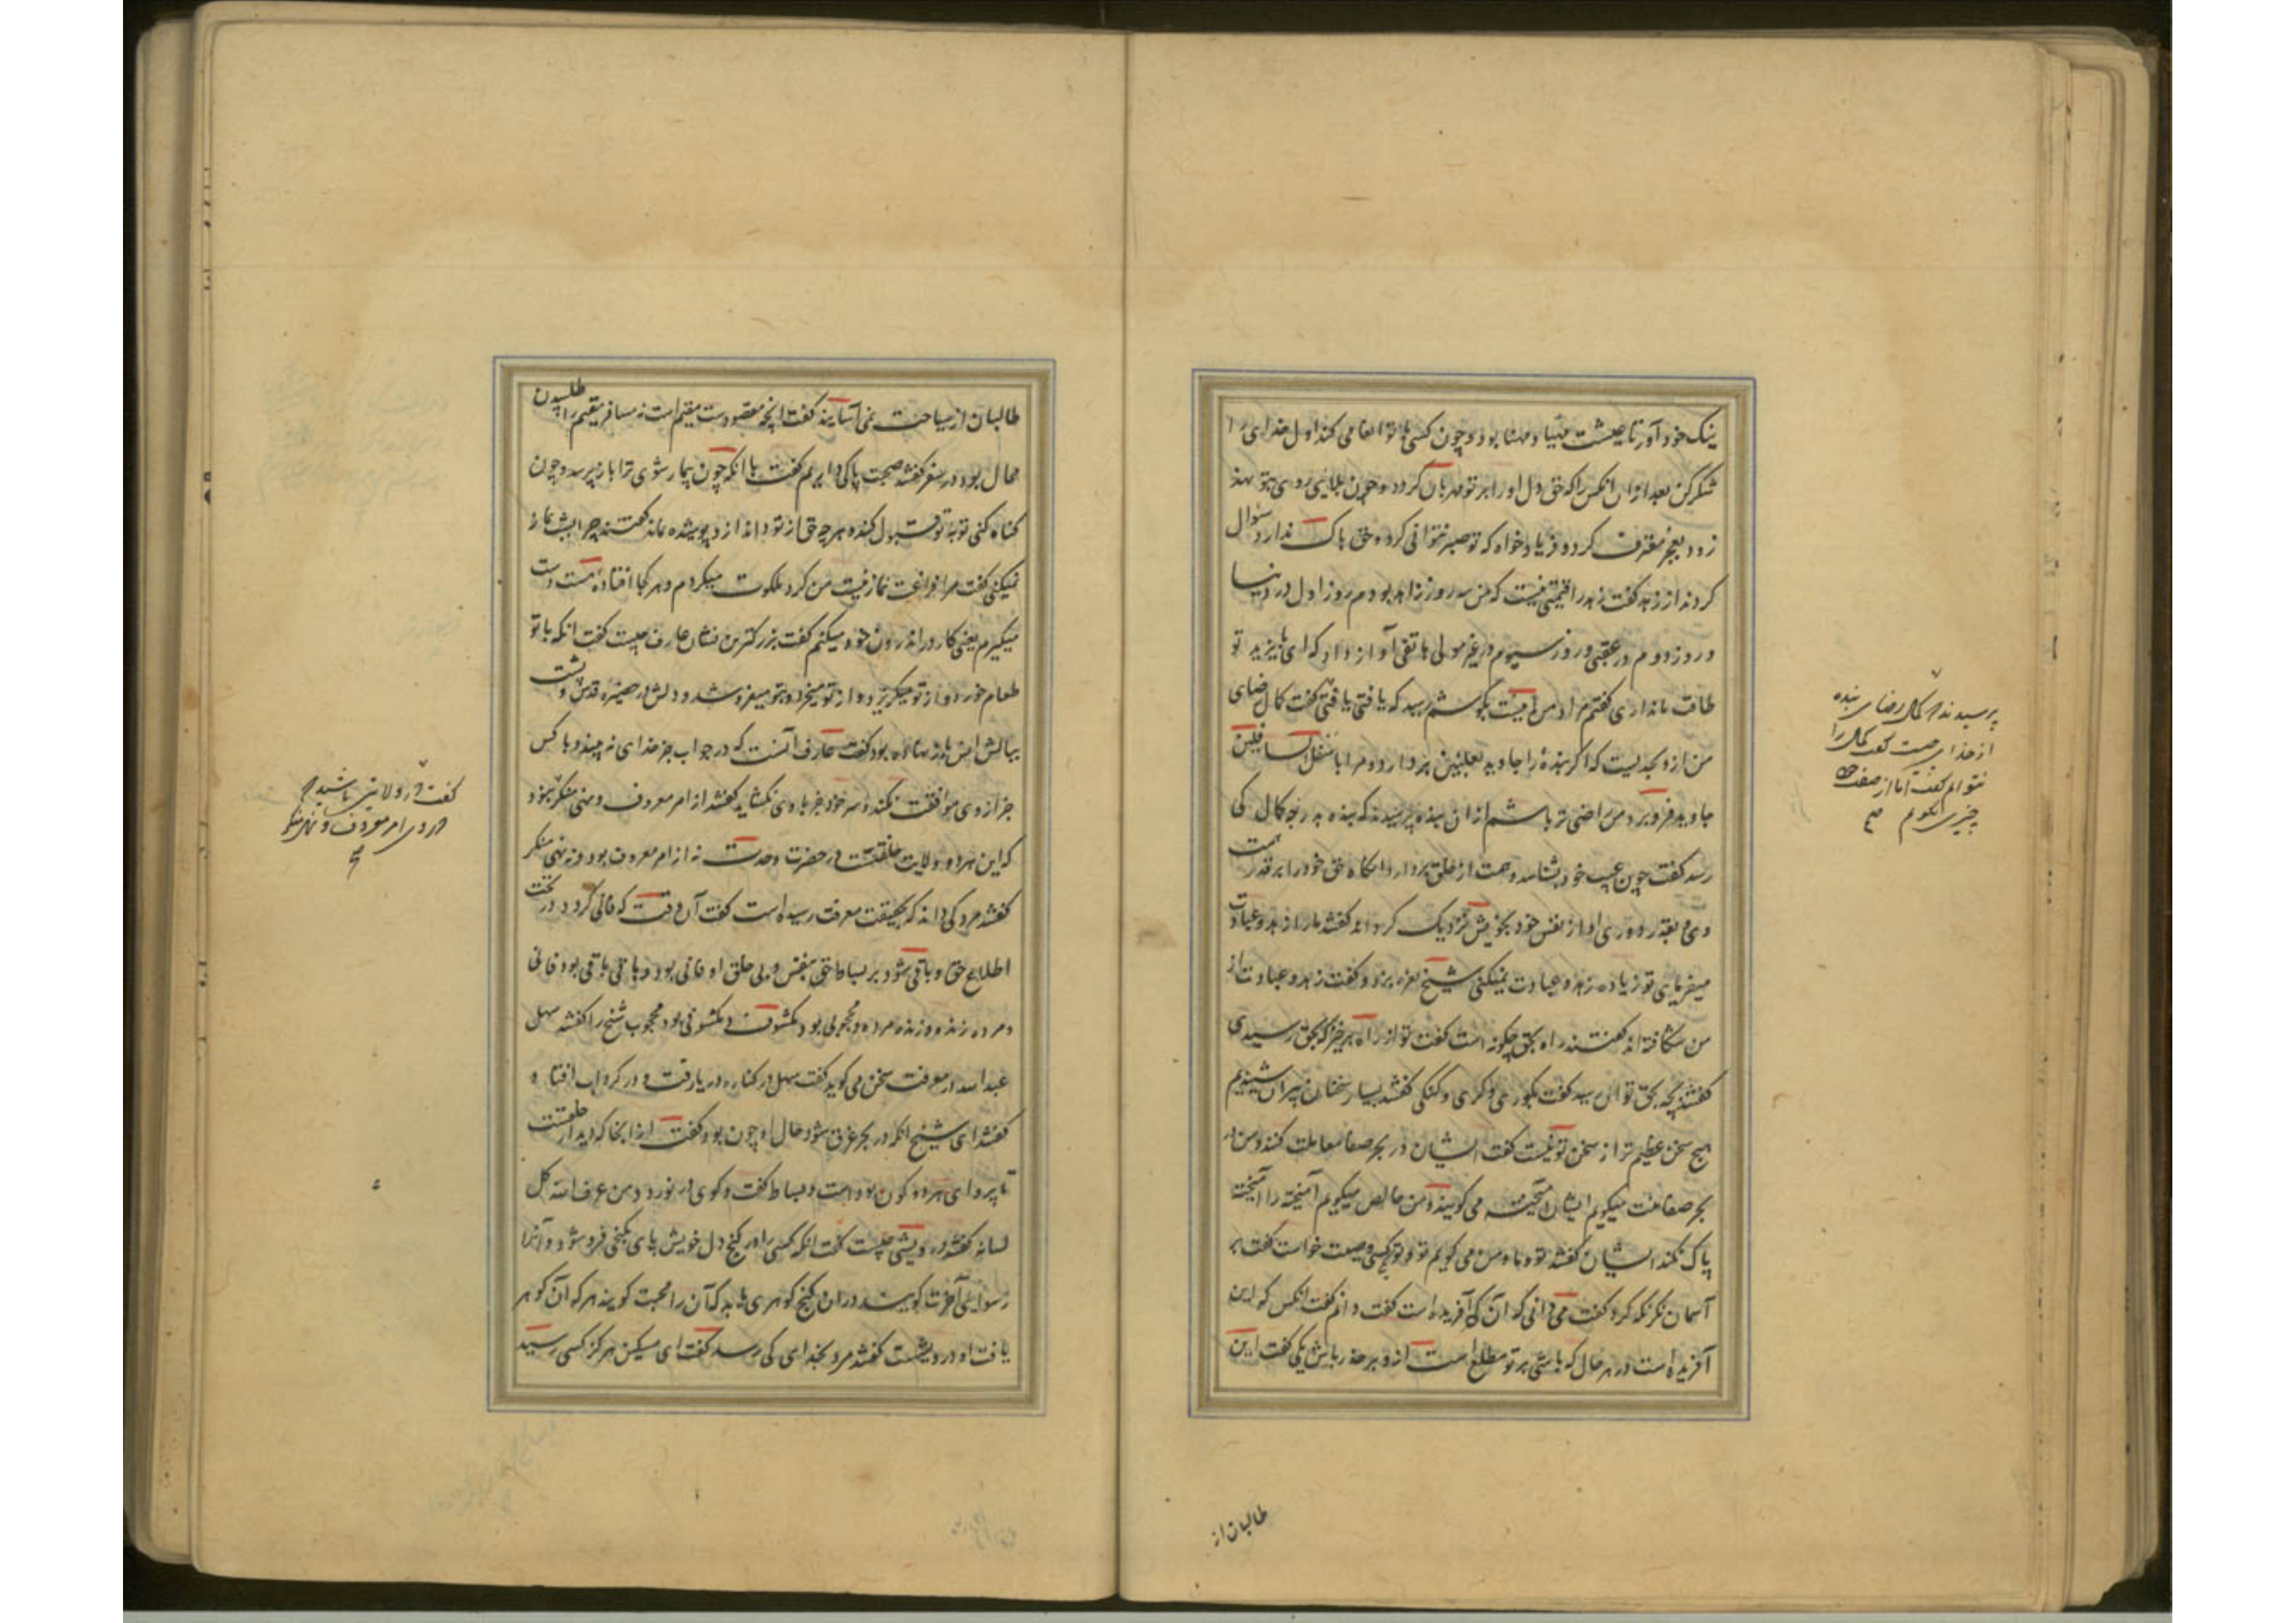 نیک خود آور تا عیشت مهیا و مهنا بود و چون کسی با تو انعامی کند اول خدای را
شکر کن بعد از آن آنکس را که حق دل او را بر تو مهربان کرد و چون بلایی روی بتو نهد
زود بعجز معترف گرد و فریاد خواه که تو صبر نتوانی کرد و حق باک ندارد سوال
کردند از زهد گفت زهد را قیمتی نیست که من سه روز زاهد بودم روز اول در دنیا
و روز دوم در عقبی و روز سیوم در غیر مولی هاتفی آواز داد که ای بایزید تو
طاقت ما نداری گفتم مراد من اینست بگوشم رسید که یافتی یافتی گفت کمال رضای
من ازو بحدیست که اگر بنده را جاوید بعلیین بردارد و مرا باسفل السافلین
جاوید فرو برد من راضی تر باشم از آن بنده پرسیدند که بنده بدرجه کمال کی
رسد گفت چون عیب خود بشناسد و همت از خلق بردارد آنگاه حق خود را بر قدر همت
وی و بقدر دوری او از نفس خود بخویش نزدیک گرداند گفتند ما را زهد و عبادت
میفرمایی تو زیاده زهد و عبادت نمیکنی شیخ نعره بزد و گفت زهد و عبادت از
من شکافته اند گفتند راه بحق چگونه است گفت تو از راه برخیز که بحق رسیدی
گفتند بچه بحق توان رسید گفت بکوری و کری و گنگی گفتند بسیار سخنان پیران شنیدیم
هیچ سخن عظیم تر از سخن تو نیست گفت ایشان در بحر صفا معاملت گفتند و من از
بحر صفا منت میگویم ایشان آمیخته می گویند و من خالص میگویم آمیخته را آمیخته
پاک نکند ایشان گفتند تو و ما و من می گویم تو و تو کسی وصیت خواست گفت بر
آسمان نگر نگه کرد گفت می دانی که آن که آفریده است گفت دانم گفت آنکس که این
آفریده است در هر حال که باشی بر تو مطلع است ازو بر حذر باش یکی گفت این
پرسیدند که کمال رضای بنده
از خدای چیست گفت کمال را
نتوانم گفت اما از صفت خود
چیزی بگویم صح
طالبان از
طالبان از سیاحت نمی آسایند گفت آنچه مقصودست مقیم است نه مسافر مقیم را طلبیدن
محال بود در سفر گفتند صحبت با که داریم گفت با آنکه چون بیمار شوی ترا باز پرسد و چون
گناه کنی توبه تو قبول کند و هر چه حق از تو داند ازو پوشیده نماند گفتند چرا بشب نماز
نمیکنی گفت مرا فراغت نماز نیست من گرد ملکوت میگردم و هر کجا افتاده ایست دست
میگیرم یعنی کار در اندرون خود میکنم گفت بزرگترین نشان عارف چیست گفت آنکه با تو
طعام خورد و از تو میگریزد و از تو میخرد و بتو میفروشد و دلش در حضیره قدس و پشت
ببالش انس باز نهاده بود گفت عارف آنست که در جواب جز خدای نه بیند و با کس
جز از وی موافقت نکند و سر خود جز با وی نگشاید گفتند از امر معروف و نهی منکر بود
که این هر دو ولایت خلقیت در حضرت وحدت نه از امر معروف بود و نه نهی منکر
گفتند مرد کی داند که بحقیقت معرفت رسیده است گفت آن وقت که فانی گردد در تحت
اطلاع حق و باقی شود بر بساط حق بی نفس و بی خلق او فانی بود و باقی باقی بود فانی
و مرده زنده و زنده مرده و محجوبی بود مکشوف و مکشوفی بود محجوب شیخ را گفتند سهل
عبدالله در معرفت سخن می گوید گفت سهل بر کناره دریا رفت و در گرداب افتاد
گفتند ای شیخ آنکه در بحر غرق شود حال او چون بود گفت از آنجا که دیدار خلقست
تا پروای هر دو کون بود است و بساط گفت و گوی در نوردد من عرف الله کل
لسانه گفتند درویشی چیست گفت آنکه کسی را در کنج دل خویش پای بگنجی فرو شود و آنرا
رسوایی آخرت گویند در آن گنج گوهری یابد که آن را محبت گویند هر که آن گوهر
یافت او درویشست گفتند مرد بخدای کی رسد گفت ای مسکین هرگز کسی رسید
گفت در ولایتی باشید که
در وی امر معروف و نهی منکر
صح